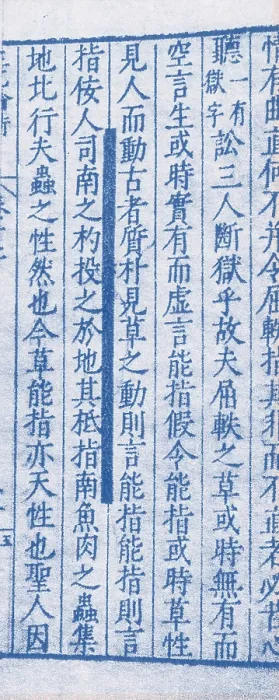 情有曲直何不並令屈軼指其非而不直者必苦心
聽一有獄字訟三人斷獄乎故夫屈軼之草或時無有而
空言生或時實有而虛言能指假令能指或時草性
見人而動古者質朴見草之動則言能指能指則言
指佞人司南之杓投之於地其柢指南魚肉之蟲集
地比行夫蟲之性然也今草能指亦天性也聖人因
五